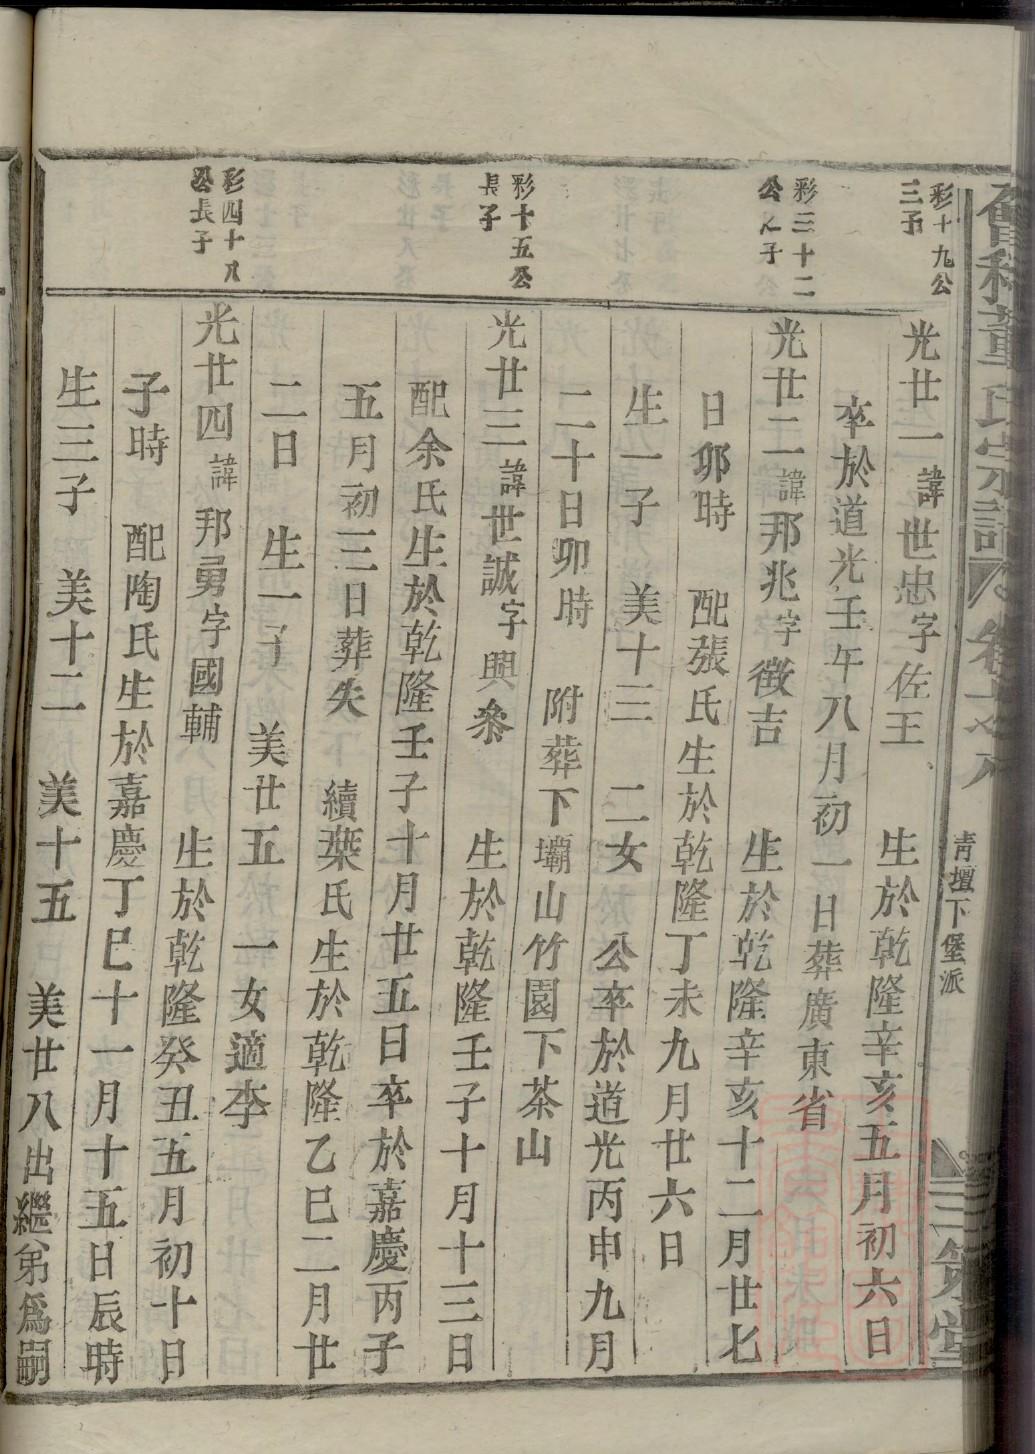 彩十九公
三子
光廿一諱世忠字佐王 生於乾隆辛亥五月初六日
卒於道光壬午八月初一日葬廣東省
彩三十二
公之子
光廿二諱邦兆字徵吉 生於乾隆辛亥十二月廿七
日卯時 配張氏生於乾隆丁未九月廿六日
生一子 美十三 二女 公卒於道光丙申九月
二十日卯時 附葬下壩山竹園下茶山
彩十五公
長子
光廿三諱世誠字興叅 生於乾隆壬子十月十三日
配余氏生於乾隆壬子十月廿五日卒於嘉慶丙子
五月初三日葬失 續葉氏生於乾隆乙巳二月廿
二日 生一子 美廿五 一女適李
彩四十八
公長子
光廿四諱邦勇字國輔 生於乾隆癸丑五月初十日
子時 配陶氏生於嘉慶丁巳十一月十五日辰時
生三子 美十二 美十五 美廿八出繼弟爲嗣
董氏宗譜 卷
青壇下堡派
三策堂